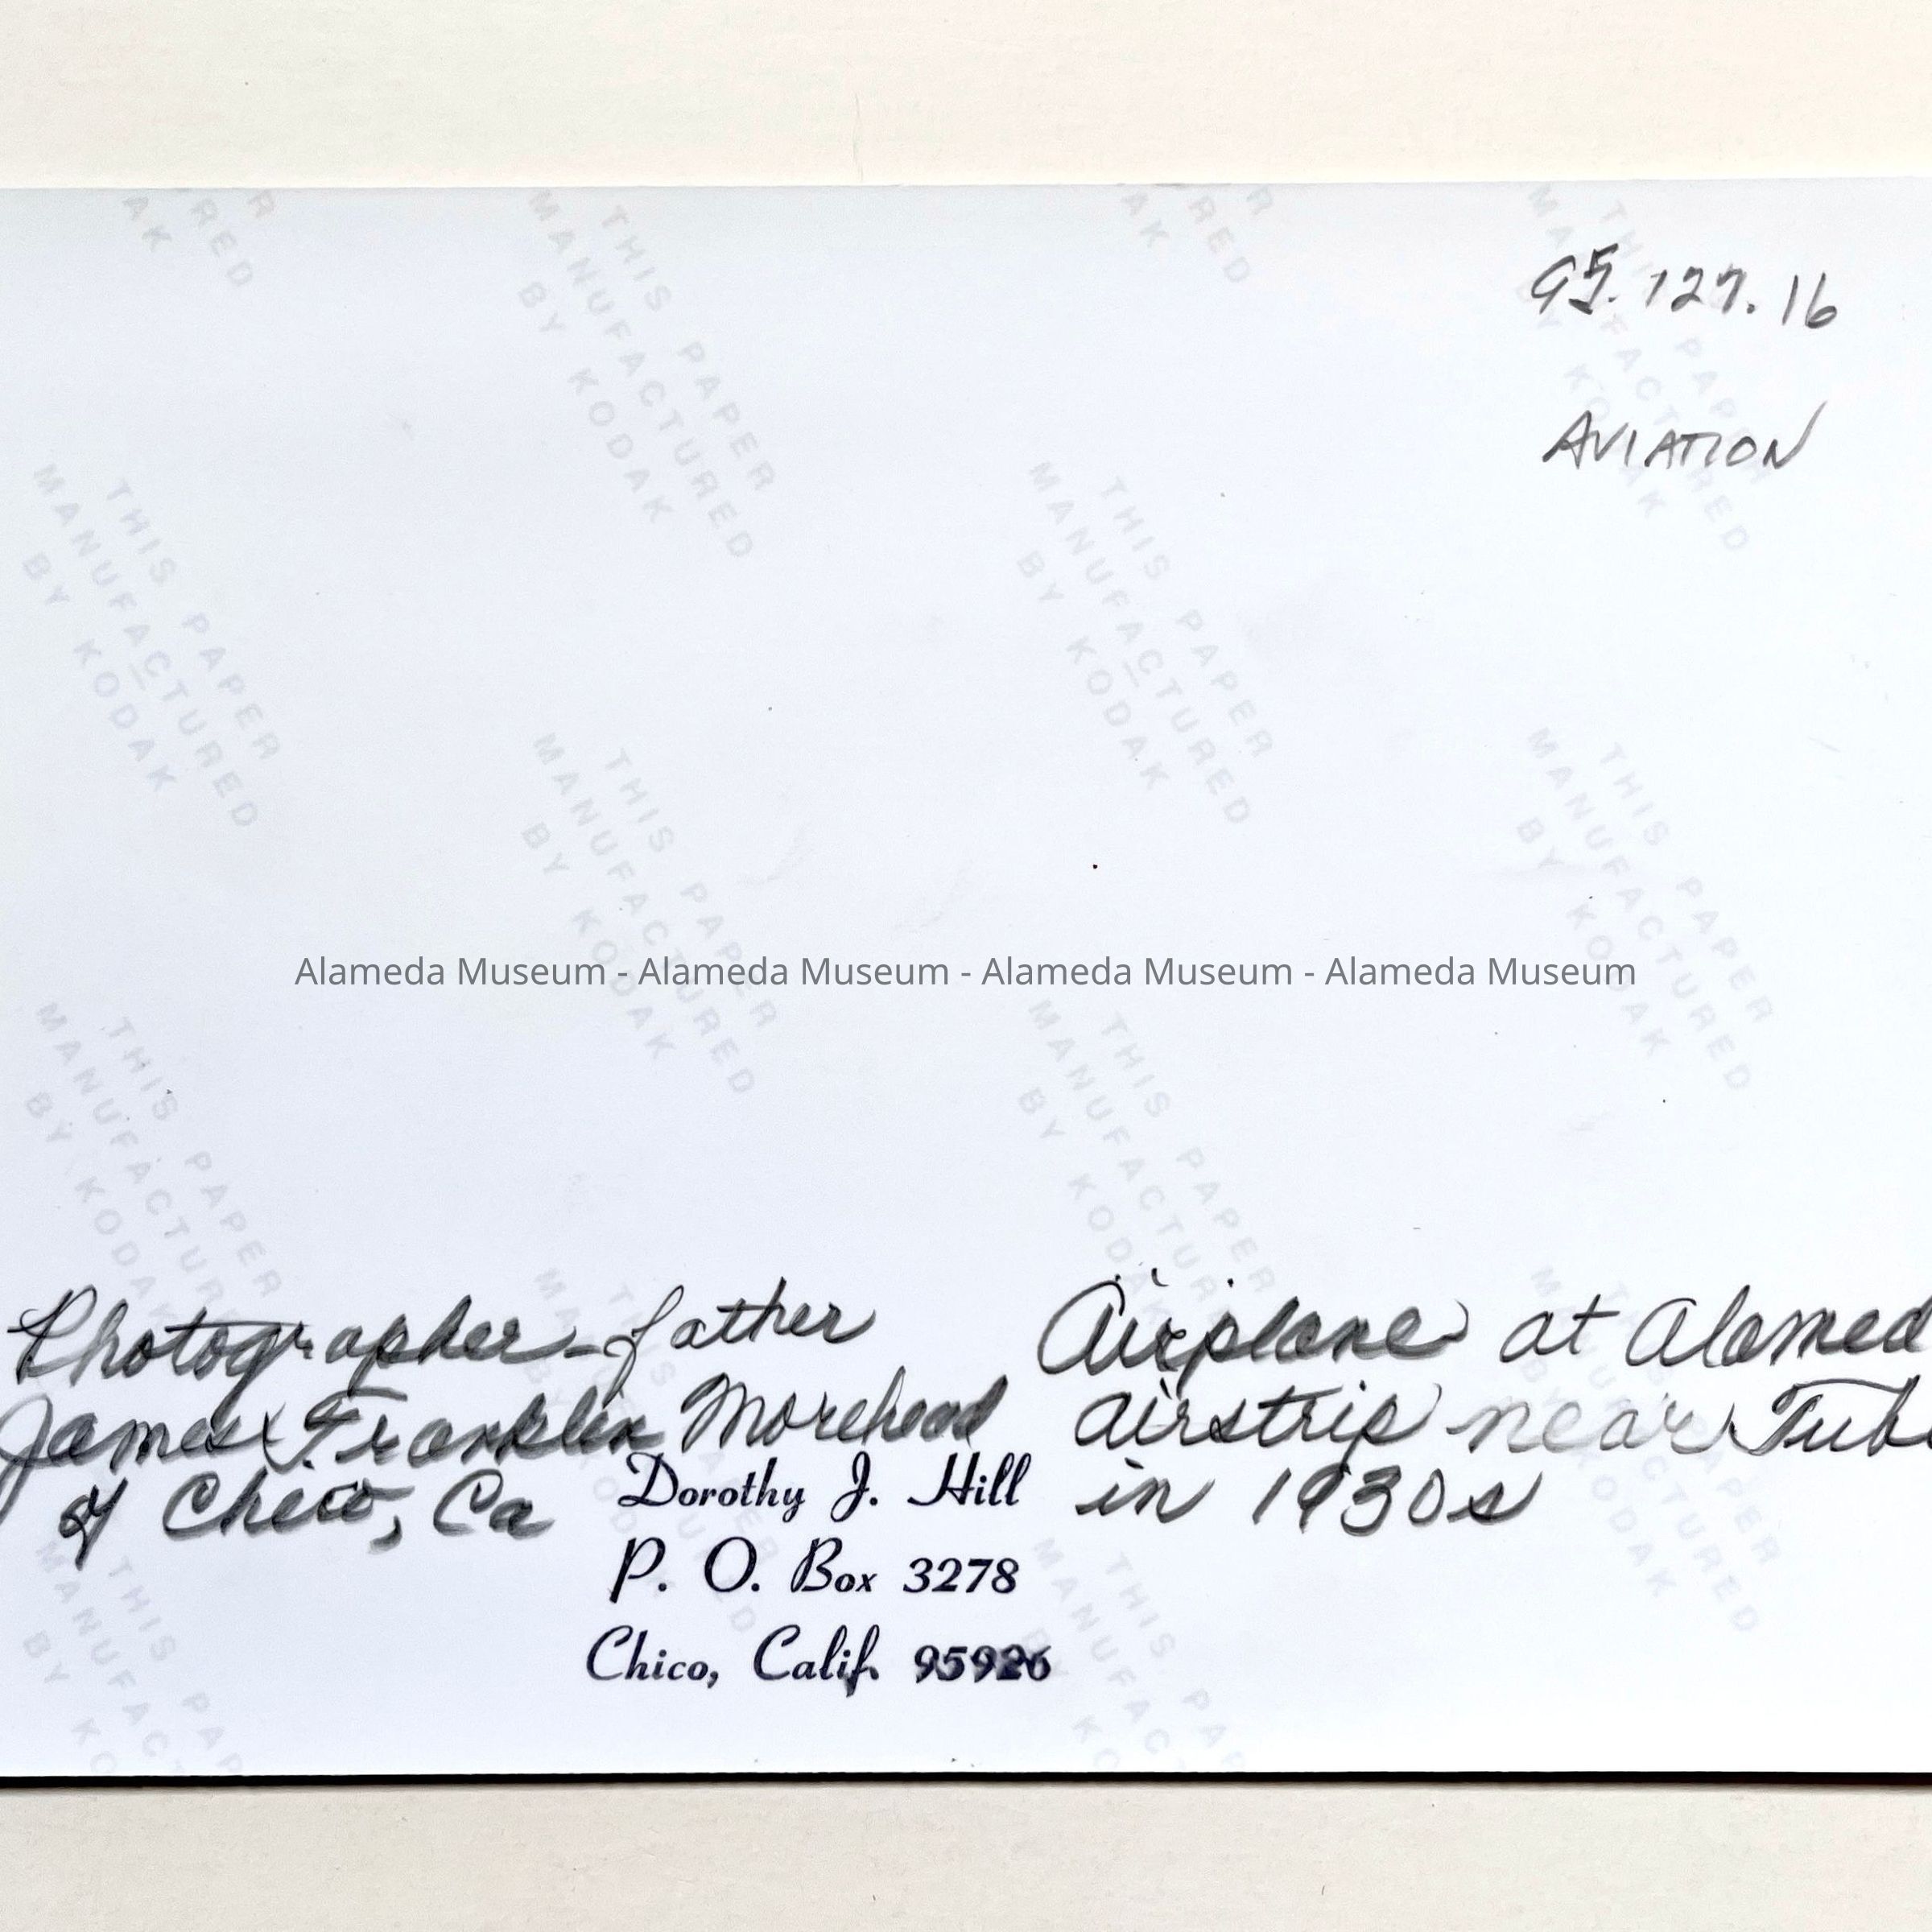 95.127.16
AVIATION
THIS PAPER
MANUFACTURED
BY KODAK
Alameda Museum - Alameda Museum - Alameda Museum - Alameda Museum
Photographer - father
James Franklin Morehead
of Chico, Ca
Dorothy J. Hill
P. O. Box 3278
Chico, Calif. 95926
Airplane at Alamed
airstrip near Tube
in 1930s